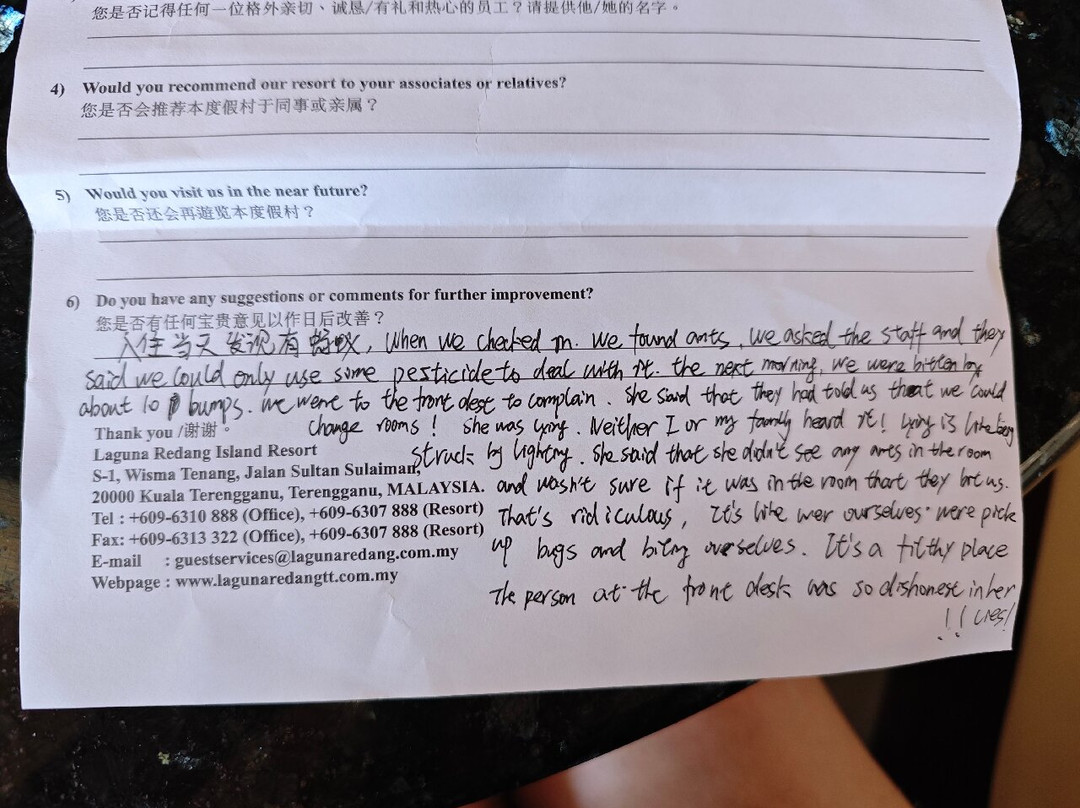 您是否记得任何一位格外亲切、诚恳/有礼和热心的员工？请提供他/她的名字。
4) Would you recommend our resort to your associates or relatives?
您是否会推荐本度假村于同事或亲属？
5) Would you visit us in the near future?
您是否还会再遊览本度假村？
6) Do you have any suggestions or comments for further improvement?
您是否有任何宝贵意见以作日后改善？
入住当天发现有蚂蚁, When we checked in. We found ants. We asked the staff and they
said we could only use some pesticide to deal with it. the next morning, we were bitten by
about 10 bumps. We went to the front dest to complain. She said that they had told us that we could
change rooms! She was lying. Neither I or my family heard it! Lying is like being
struck by lightng. She said that she didn't see any ants in the room
and wasn't sure if it was in the room thart they bit us.
That's ridiculous, It's like wer ourselves were pick
up bugs and biting ourselves. It's a filthy place
The person at the front desk was so dishonest in her
!! Lies!
Thank you /谢谢。
Laguna Redang Island Resort
S-1, Wisma Tenang, Jalan Sultan Sulaiman,
20000 Kuala Terengganu, Terengganu, MALAYSIA.
Tel : +609-6310 888 (Office), +609-6307 888 (Resort)
Fax: +609-6313 322 (Office), +609-6307 888 (Resort)
E-mail : guestservices@lagunaredang.com.my
Webpage : www.lagunaredangtt.com.my